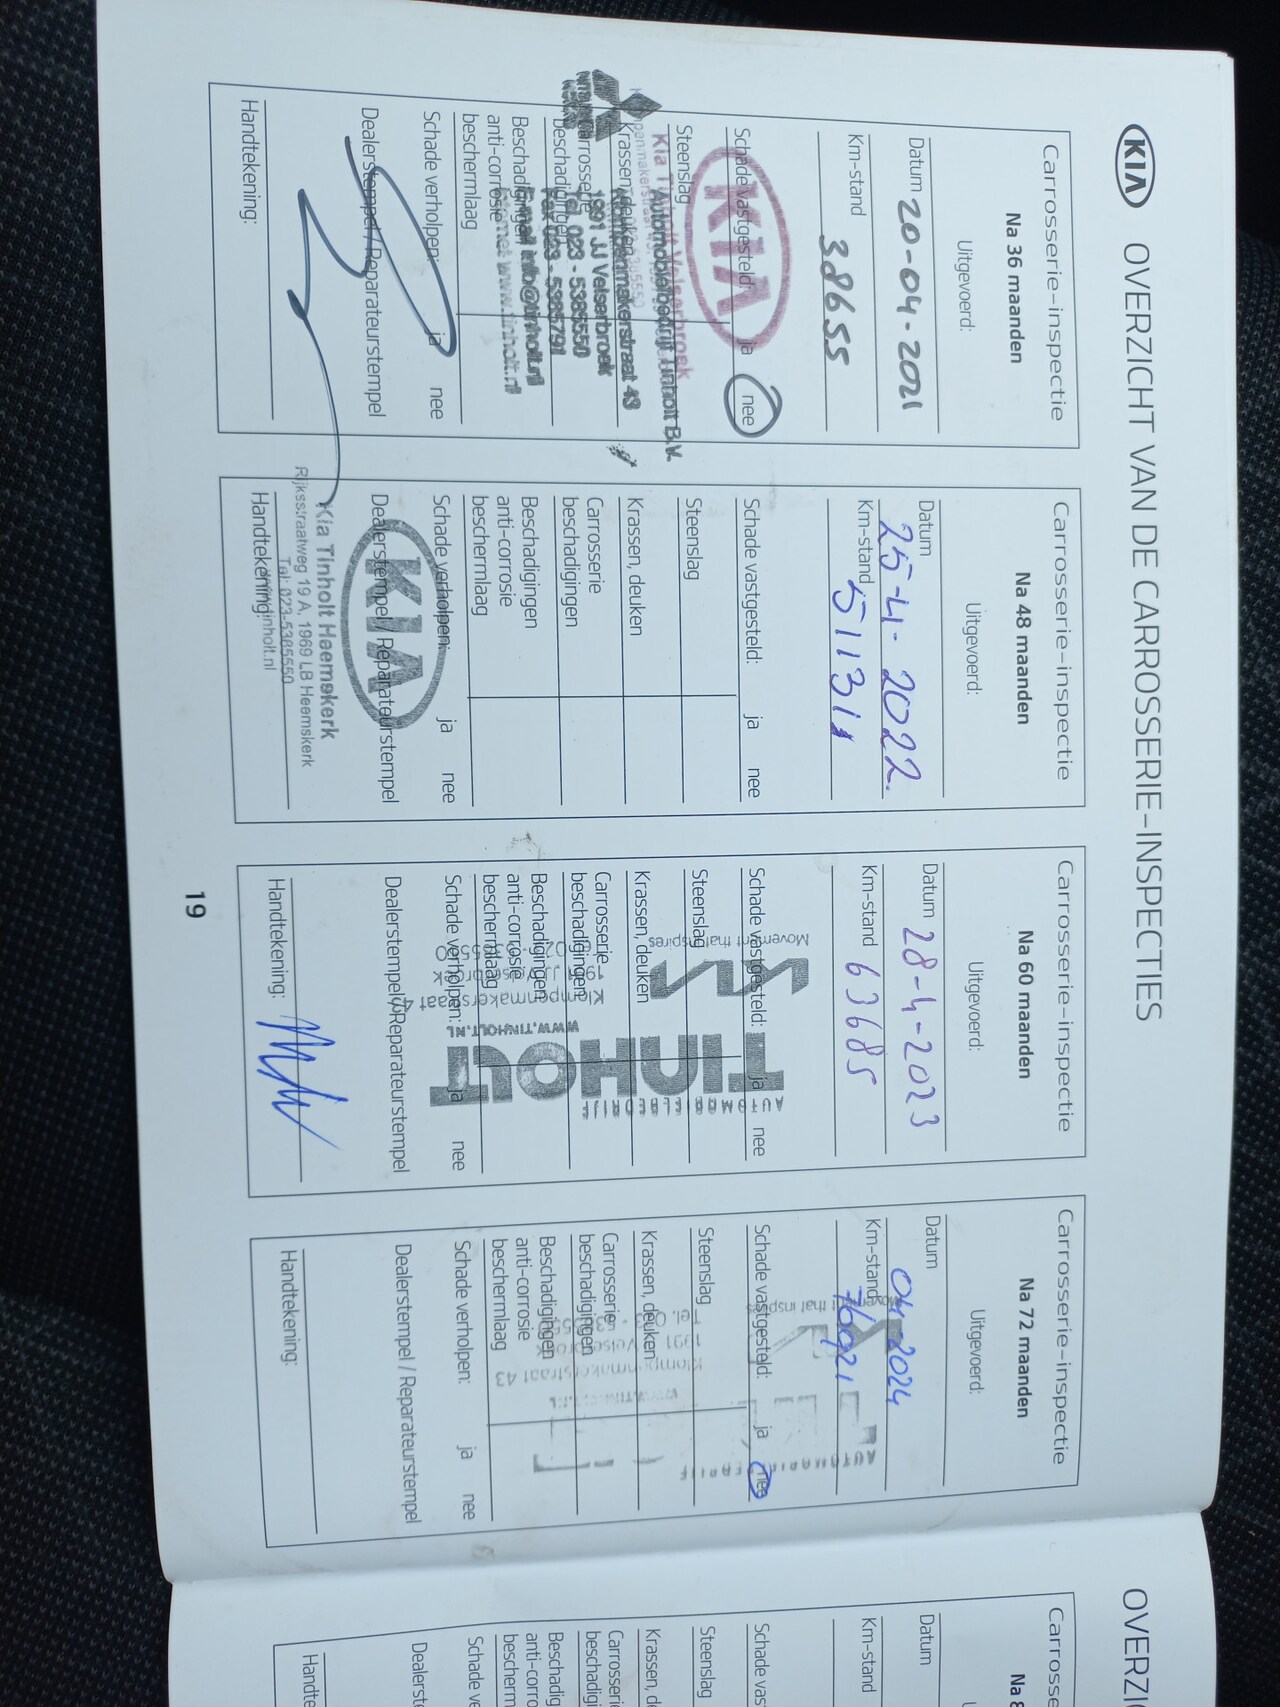 KIA OVERZICHT VAN DE CARROSSERIE-INSPECTIES
Carrosserie-inspectie
Na 36 maanden
Uitgevoerd:
Datum 20-04-2021
Km-stand 38655
Schade vastgesteld: ja nee
KIA
Steenslag
Kia Tinholt Velserbroek
Automobielbedrijf Tinholt B.V.
Krassen, deuken
Klompenmakerstraat 43
1991 JJ Velserbroek
Carrosserie
beschadigingen
Tel. 023 - 5385550
Fax 023 - 5385791
Beschadigingen
anti-corrosie
beschermlaag
E-mail info@tinholt.nl
Internet www.tinholt.nl
Schade verholpen: ja nee
Dealerstempel / Reparateurstempel
Handtekening:
Carrosserie-inspectie
Na 48 maanden
Uitgevoerd:
Datum 25-4-2022
Km-stand 51131
Schade vastgesteld: ja nee
Steenslag
Krassen, deuken
Carrosserie
beschadigingen
Beschadigingen
anti-corrosie
beschermlaag
Schade verholpen: ja nee
Dealerstempel / Reparateurstempel
KIA
Kia Tinholt Heemskerk
Rijksstraatweg 19 A, 1969 LB Heemskerk
Tel: 023-5385550
Handtekening:
Carrosserie-inspectie
Na 60 maanden
Uitgevoerd:
Datum 28-4-2023
Km-stand 63685
Schade vastgesteld: ja nee
Steenslag
Krassen, deuken
Carrosserie
beschadigingen
Beschadigingen
anti-corrosie
beschermlaag
Schade verholpen: ja nee
Dealerstempel / Reparateurstempel
Handtekening:
AUTOMOBIELBEDRIJF
TINHOLT
WWW.TINHOLT.NL
Movement that inspires
Klompenmakerstraat
1991 JJ Velserbroek
Carrosserie-inspectie
Na 72 maanden
Uitgevoerd:
Datum 04-2024
Km-stand 76921
Schade vastgesteld: ja nee
Steenslag
Krassen, deuken
Carrosserie
beschadigingen
Beschadigingen
anti-corrosie
beschermlaag
Schade verholpen: ja nee
Dealerstempel / Reparateurstempel
Handtekening:
Movement that inspires
Klompenmakerstraat 43
1991 Velserbroek
19
OVERZI
Carrosse
Datum
Km-stand
Schade vast
Steenslag
Krassen, de
Carrosserie
beschadigi
Beschadig
anti-corro
bescherm
Schade ve
Dealerst
Handte